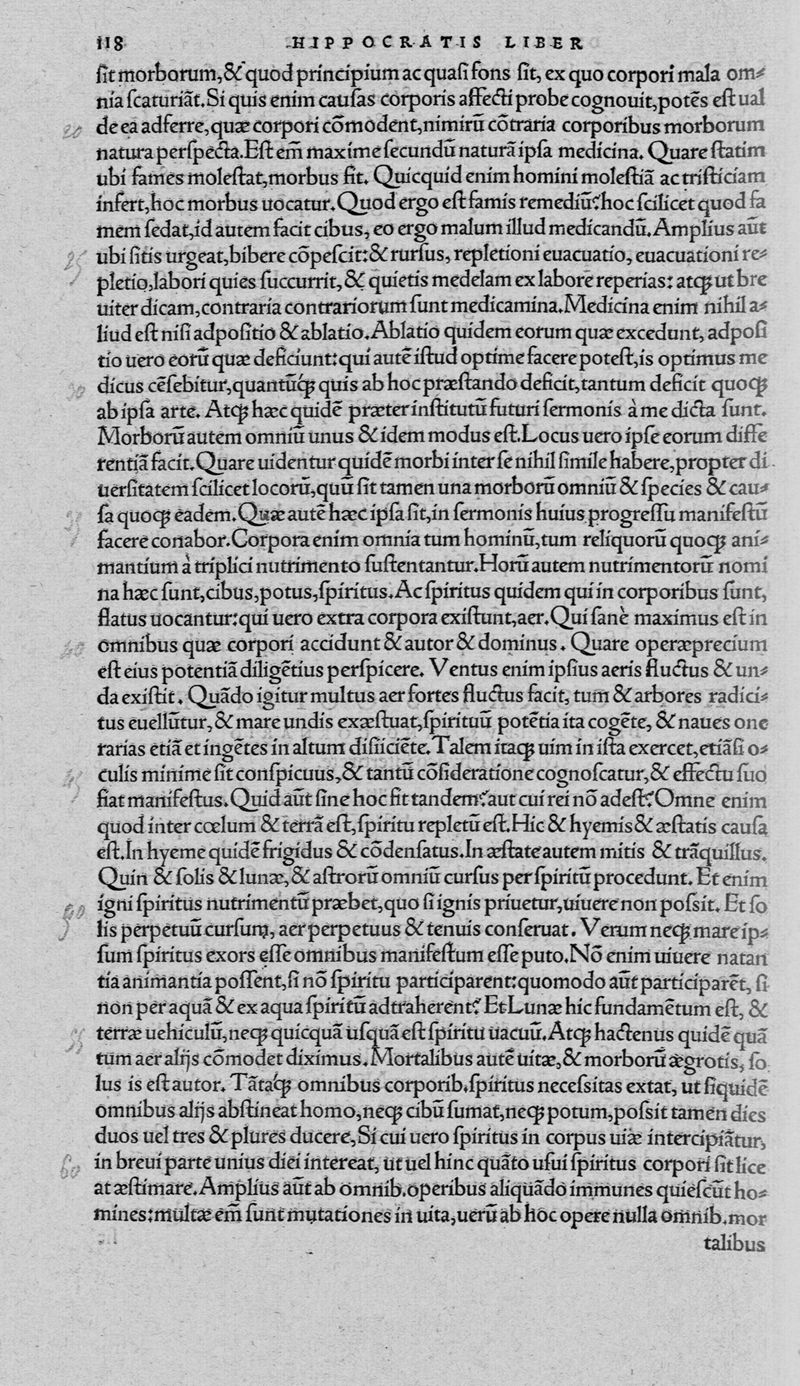 118 HIPPOCRATIS LIBER
ſit morborum, & quod principium ac quaſi fons ſit, ex quo corpori mala om⸗
nia ſcaturiãt. Si quis enim cauſas corporis affecti probe cognouit, potẽs eſt ual
de ea adferre, quæ corpori cõmodent, nimirũ cõtraria corporibus morborum
natura perſpecta. Eſt em̃ maxime ſecundũ naturã ipſa medicina. Quare ſtatim
ubi fames moleſtat, morbus fit. Quicquid enim homini moleſtiã ac triſticiam
infert, hoc morbus uocatur. Quod ergo eſt famis remediũ? hoc ſcilicet quod fa
mem ſedat, id autem facit cibus, eo ergo malum illud medicandũ. Amplius aũt
ubi ſitis urgeat, bibere cõpeſcit: & rurſus, repletioni euacuatio, euacuationi re⸗
pletio, labori quies ſuccurrit, & quietis medelam ex labore reperias: atꝗ ut bre
uiter dicam, contraria contrariorum ſunt medicamina. Medicina enim nihil a⸗
liud eſt niſi adpoſitio & ablatio. Ablatio quidem eorum quæ excedunt, adpoſi
tio uero eorũ quæ deficiunt: qui autẽ iſtud optime facere poteſt, is optimus me
dicus cẽſebitur, quantũcꝗ quis ab hoc præſtando deficit, tantum deficit quoꝗ
ab ipſa arte. Atꝗ hæc quidẽ præter inſtitutũ futuri ſermonis à me dicta ſunt.
Morborũ autem omniũ unus & idem modus eſt. Locus uero ipſe eorum diffe
rentiã facit. Quare uidentur quidẽ morbi inter ſe nihil ſimile habere, propter di
uerſitatem ſcilicet locorũ, quũ ſit tamen una morborũ omniũ & ſpecies & cau⸗
ſa quoꝗ eadem. Quæ autẽ hæc ipſa ſit, in ſermonis huius progreſſu manifeſtũ
facere conabor. Corpora enim omnia tum hominũ, tum reliquorũ quoꝗ ani⸗
mantium à triplici nutrimento ſuſtentantur. Horũ autem nutrimentorũ nomi
na hæc ſunt, cibus, potus, ſpiritus. Ac ſpiritus quidem qui in corporibus ſunt,
flatus uocantur: qui uero extra corpora exiſtunt, aer. Qui ſanè maximus eſt in
omnibus quæ corpori accidunt & autor & dominus. Quare operæprecium
eſt eius potentiã diligẽtius perſpicere. Ventus enim ipſius aeris fluctus & un⸗
da exiſtit. Quãdo igitur multus aer fortes fluctus facit, tum & arbores radici⸗
tus euellũtur, & mare undis exæſtuat, ſpirituũ potẽtia ita cogẽte, & naues one
rarias etiã et ingẽtes in altum diſijciẽte. Talem itaꝗ uim in iſta exercet, etiãſi o⸗
culis minime ſit conſpicuus, & tantũ cõſideratione cognoſcatur, & effectu ſuo
fiat manifeſtus. Quid aũt ſine hoc fit tandem? aut cui rei nõ adeſt? Omne enim
quod inter cœlum & terrã eſt, ſpiritu repletũ eſt. Hic & hyemis & æſtatis cauſa
eſt. In hyeme quidẽ frigidus & cõdenſatus. In æſtate autem mitis & trãquillus.
Quin & ſolis & lunæ, & aſtrorũ omniũ curſus per ſpiritũ procedunt. Et enim
igni ſpiritus nutrimentũ præbet, quo ſi ignis priuetur, uiuere non poſsit. Et ſo
lis perpetuũ curſum, aer perpetuus & tenuis conſeruat. Verum neꝗ mare ip⸗
ſum ſpiritus exors eſſe omnibus manifeſtum eſſe puto. Nõ enim uiuere natan
tia animantia poſſent, ſi nõ ſpiritu participarent: quomodo aũt participarẽt, ſi
non per aquã & ex aqua ſpiritũ adtraherent? Et Lunæ hic fundamẽtum eſt, &
terræ uehiculũ, neꝗ quicquã uſquã eſt ſpiritu uacuũ. Atꝗ hactenus quidẽ quã
tum aer alijs cõmodet diximus. Mortalibus autẽ uitæ, & morborũ ægrotis, ſo
lus is eſt autor. Tãtaꝗ omnibus corporib. ſpiritus neceſsitas extat, ut ſiquidẽ
omnibus alijs abſtineat homo, neꝗ cibũ ſumat, neꝗ potum, poſsit tamen dies
duos uel tres & plures ducere, Si cui uero ſpiritus in corpus uiæ intercipiãtur,
in breui parte unius diei intereat, ut uel hinc quãto uſui ſpiritus corpori ſit lice
at æſtimare. Amplius aũt ab omnib. operibus aliquãdo immunes quieſcũt ho⸗
mines: multæ em̃ ſunt mutationes in uita, uerũ ab hoc opere nulla omnib. mor
talibus